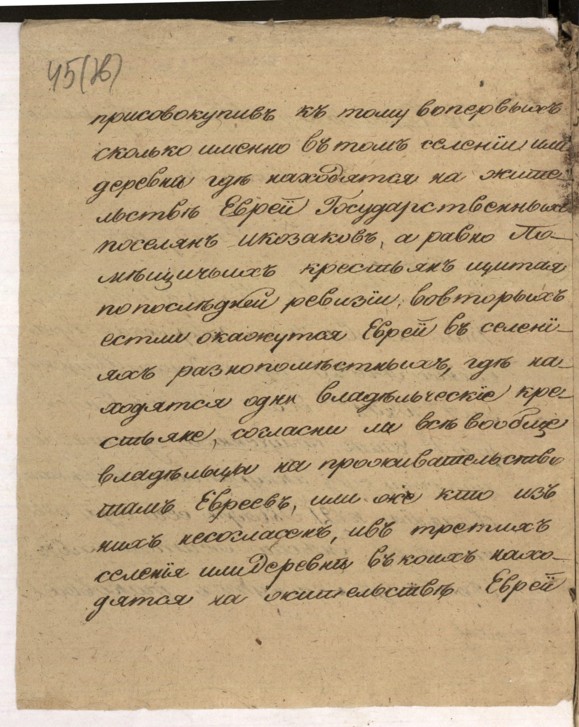 45(28)
присовокупивъ къ тому вопервыхъ
сколько именно втомъ селеніи или
деревни гдѣ находятся на жите-
льствѣ Еврей Государственныхъ
поселянъ икозаковъ, а равно По-
мѣщичьихъ крестьянъ щитая
попослѣдней ревизіи, вовторыхъ
естли окажутся Еврей въ селені-
яхъ разнопомѣстныхъ, гдѣ на-
ходятся одни владѣльческіе кре-
стьяне, согласни ли всѣ вообще
владѣльцы на проживательство
тамъ Евреевъ, или же кто изъ
нихъ несогласенъ, ивъ третихъ
селенія илидеревни въкоихъ нахо-
дятся на жительствѣ Еврей